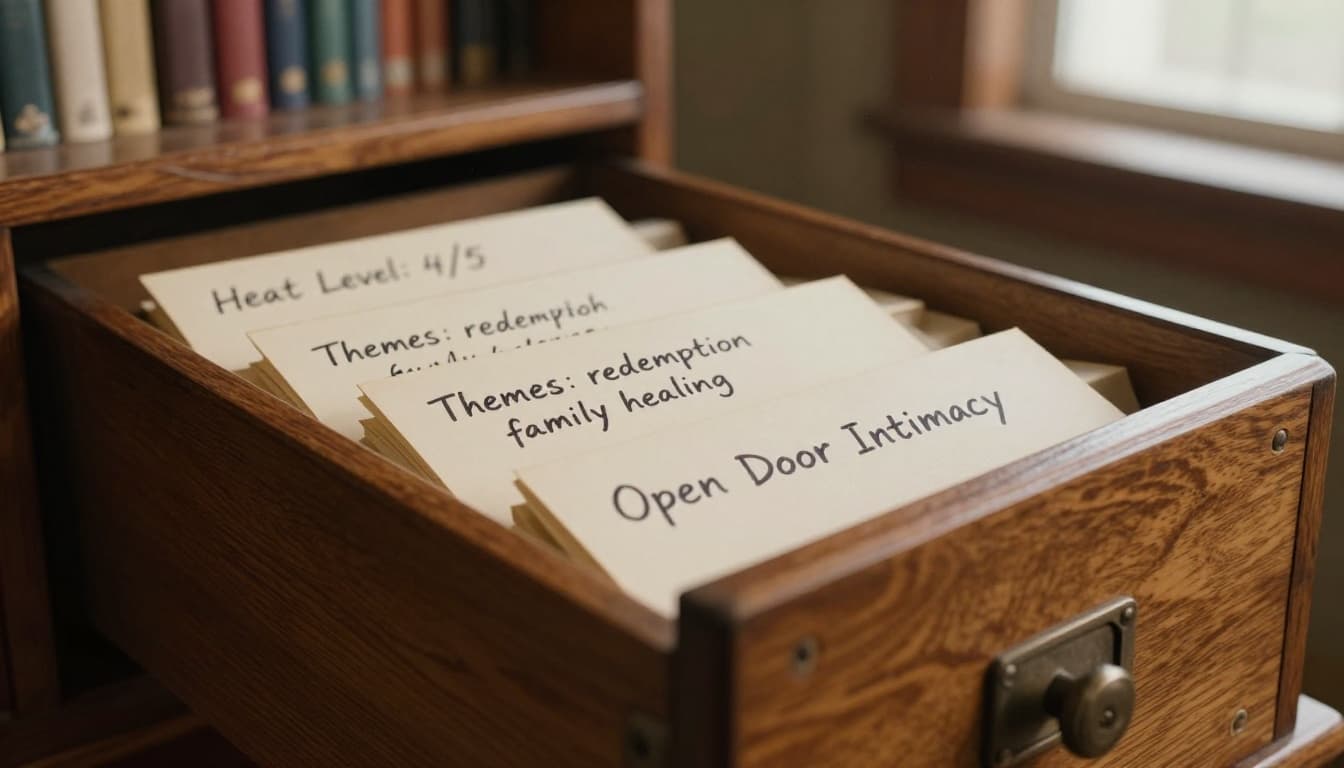 Heat Level: 4/5
Themes: redemptioh
Themes: redemption
family healing
Open Door Intimacy